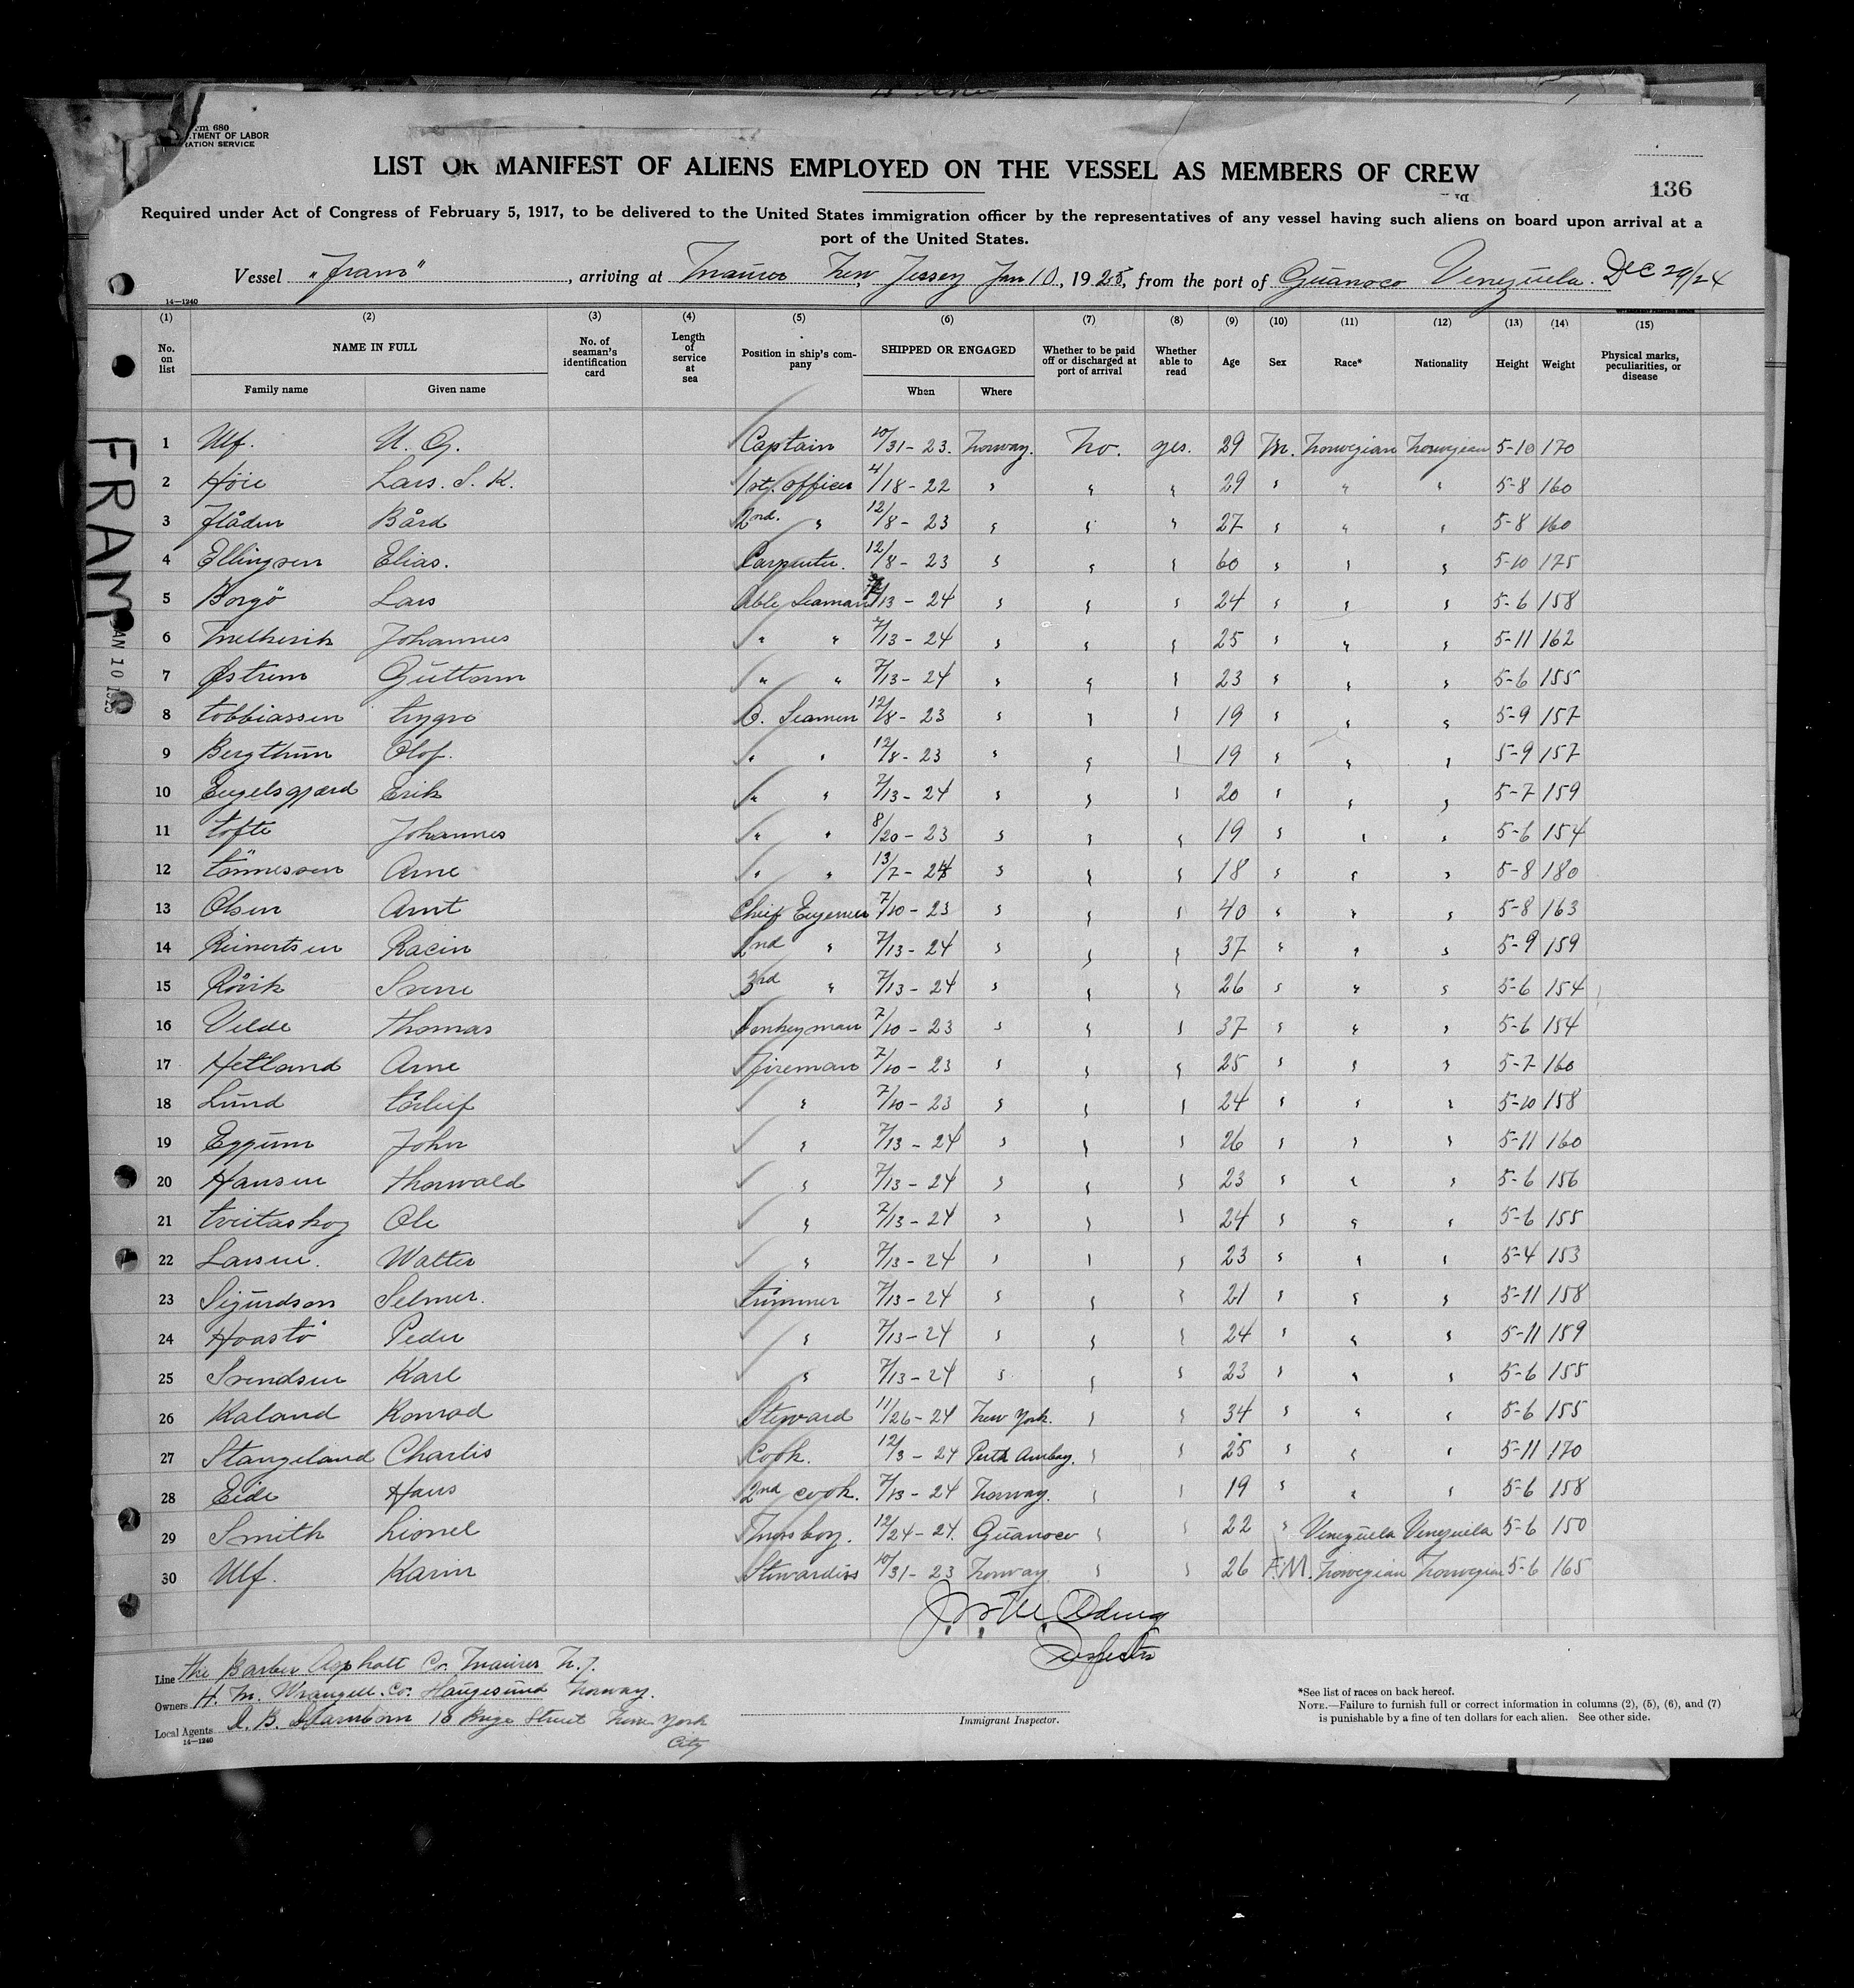 Form 680
DEPARTMENT OF LABOR
IMMIGRATION SERVICE
LIST OR MANIFEST OF ALIENS EMPLOYED ON THE VESSEL AS MEMBERS OF CREW
136
Required under Act of Congress of February 5, 1917, to be delivered to the United States immigration officer by the representatives of any vessel having such aliens on board upon arrival at a
port of the United States.
Vessel "Fram", arriving at Maurer New Jersey Jan 10, 1925, from the port of Guanoco Venezuela. Dec 29/24
14—1240
(1) (2) (3) (4) (5) (6) (7) (8) (9) (10) (11) (12) (13) (14) (15)
No. on list NAME IN FULL No. of seaman's identification card Length of service at sea Position in ship's company SHIPPED OR ENGAGED Whether to be paid off or discharged at port of arrival Whether able to read Age Sex Race* Nationality Height Weight Physical marks, peculiarities, or disease
Family name Given name When Where
1 Ulf. U. G. Captain 10/31 - 23. Norway. No. yes. 29 M. Norwegian Norwegian 5-10 170
2 Höie Lars. S. K. 1st. officer 4/18 - 22 " " " 29 " " " 5-8 160
3 Flåden Bård 2nd. " 12/8 - 23 " " " 27 " " " 5-8 160
4 Ellingsen Elias. Carpenter. 12/8 - 23 " " " 60 " " " 5-10 175
5 Borgö Lars Able Seaman 7/13 - 24 " " " 24 " " " 5-6 158
6 Johannes " " 7/13 - 24 " " " 25 " " " 5-11 162
7 Østrem Guttorm " " 7/13 - 24 " " " 23 " " " 5-6 155
8 tobbiassen trygve O. Seamen 12/8 - 23 " " " 19 " " " 5-9 157
9 Bergthun Olof. " " 12/8 - 23 " " " 19 " " " 5-9 157
10 Engelsgjærd Erik " " 7/13 - 24 " " " 20 " " " 5-7 159
11 tofte Johannes " " 8/20 - 23 " " " 19 " " " 5-6 154
12 tönnessen Arne " " 13/7 - 24 " " " 18 " " " 5-8 180
13 Olsen Arnt Chief Engeneer 7/10 - 23 " " " 40 " " " 5-8 163
14 Reinertsen Racin 2nd " 7/13 - 24 " " " 37 " " " 5-9 159
15 Rövik Svene 3rd " 7/13 - 24 " " " 26 " " " 5-6 154
16 Velde thomas Donkeyman 7/10 - 23 " " " 37 " " " 5-6 154
17 Hetland Arne fireman 7/10 - 23 " " " 25 " " " 5-7 160
18 Lund torleif " 7/10 - 23 " " " 24 " " " 5-10 158
19 Eggum John " 7/13 - 24 " " " 26 " " " 5-11 160
20 Hansen thorwald " 7/13 - 24 " " " 23 " " " 5-6 156
21 tveitaskog Ole " 7/13 - 24 " " " 24 " " " 5-6 155
22 Larsen. Walter " 7/13 - 24 " " " 23 " " " 5-4 153
23 Sigurdson Selmer. trimmer 7/13 - 24 " " " 21 " " " 5-11 158
24 Hoastö Peder " 7/13 - 24 " " " 24 " " " 5-11 159
25 Svendsen Karl " 7/13 - 24 " " " 23 " " " 5-6 155
26 Kaland Konrad Steward 11/26 - 24 New York. " " 34 " " " 5-6 155
27 Stangeland Charlis Cook. 12/3 - 24 Perth Amboy. " " 25 " " " 5-11 170
28 Eide Hans 2nd cook. 7/13 - 24 Norway. " " 19 " " " 5-6 158
29 Smith Lionel Messboy. 12/24 - 24. Guanoco " " 22 " Venezuela Venezuela 5-6 150
30 Ulf. Karin Stewardess 10/31 - 23 Norway " " 26 F.M. Norwegian Norwegian 5-6 165
Line the Barber Asphalt Co. Maurer N.J.
Owners H. M. Wrangell. Co. Haugesund Norway.
Local Agents 18 Street New York
City
14—1240
Immigrant Inspector.
*See list of races on back hereof.
NOTE.—Failure to furnish full or correct information in columns (2), (5), (6), and (7)
is punishable by a fine of ten dollars for each alien. See other side.
FRAM
JAN 10 1925